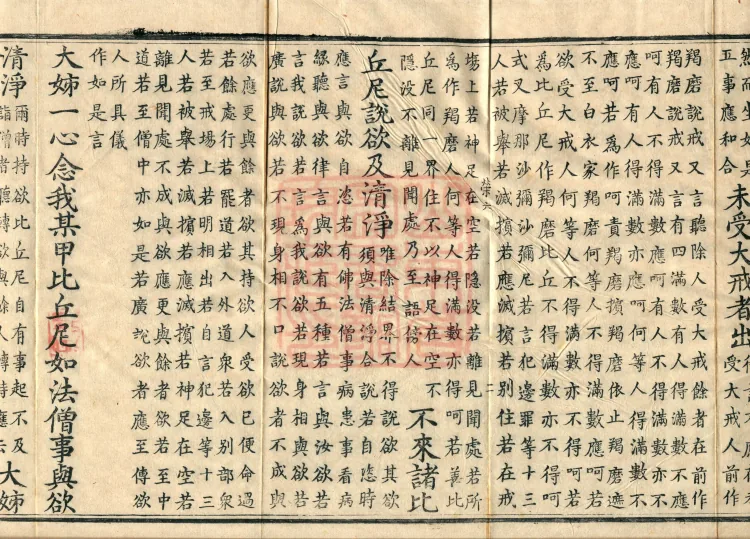 五事應和合
未受大戒者出
受大戒人前作
羯磨說戒又言聽除人受大戒餘者在前作
羯磨說戒又言有四滿數有人得滿數不應
呵有人不得滿數應呵有人不得滿數亦不
應呵有人得滿數亦應呵何等人得滿數不
應呵若為作呵責羯磨擯羯磨依止羯磨遮
不至白衣家羯磨何等人不得滿數應呵若
欲受大戒人何等人不得滿數亦不得呵若
為比丘尼作羯磨比丘尼不得滿數亦不得呵
式叉摩那沙彌沙彌尼若言犯邊罪等十三
人若被舉若滅擯若應滅擯若別住若在戒
場上若神足在空若隱没若離見聞處若所
為作羯磨人何等人得滿數亦得呵若善比
丘尼同一界住不以神足在空不
隱没不離見聞處乃至語傍人
不來諸比
丘尼說欲及清淨
唯除結界不得說欲其欲
須與清淨合說若自恣時
應言與欲自恣若有佛法僧事病患事看病
緣聽與欲律言與欲有五種若言與汝欲若
言我說欲若言為我說欲若現身相與欲若
廣說與欲若不現身相不口說欲者不成與
欲應更與餘者欲其持欲人受欲已便命過
若餘處行若罷道若入外道衆若入別部衆
若至戒場上若明相出若自言犯邊等十三
人若被舉若滅擯若應滅擯若神足在空若
離見聞處不成與欲應更與餘者欲若至中
道若至僧中亦如是若廣說欲者應至傳欲
人所具儀
作如是言
大姊一心念我某甲比丘尼如法僧事與欲
清淨
爾時持欲比丘尼自有事起不及
詣僧者聽轉欲與餘人轉時應云
大姊